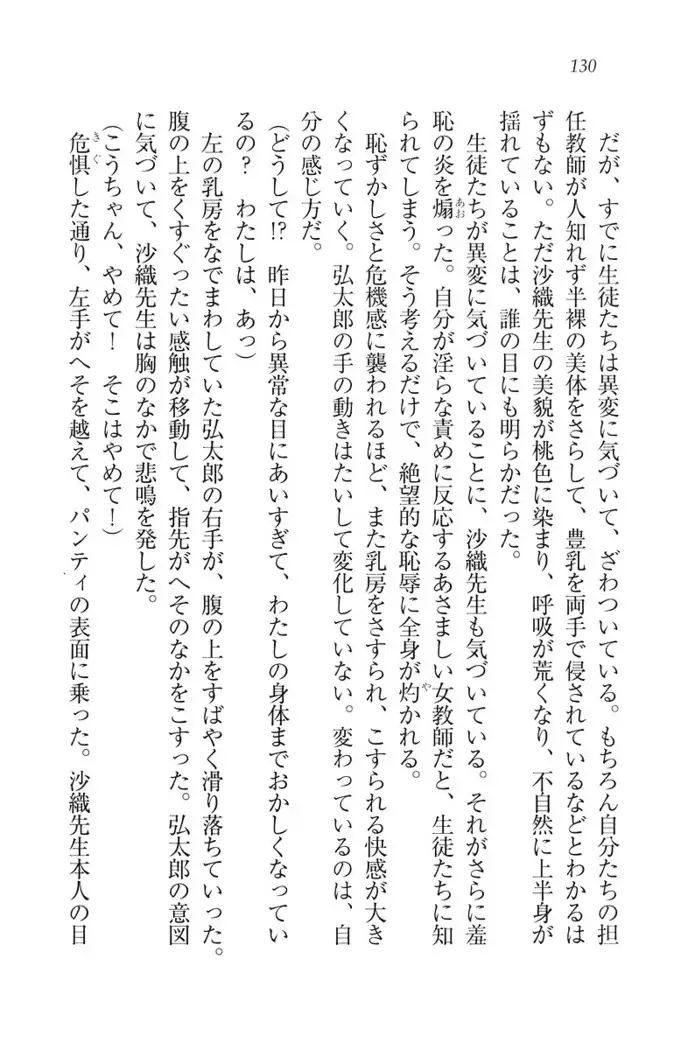 130
だが、すでに生徒たちは異変に気づいて、ざわついている。もちろん自分たちの担
任教師が人知れず半裸の美体をさらして、豊乳を両手で侵されているなどとわかるは
ずもない。ただ沙織先生の美貌が桃色に染まり、呼吸が荒くなり、不自然に上半身が
揺れていることは、誰の目にも明らかだった。
生徒たちが異変に気づいていることに、沙織先生も気づいている。それがさらに羞
恥の炎を煽あおった。自分が淫らな責めに反応するあさましい女教師だと、生徒たちに知
られてしまう。そう考えるだけで、絶望的な恥辱に全身が灼やかれる。
恥ずかしさと危機感に襲われるほど、また乳房をさすられ、こすられる快感が大き
くなっていく。弘太郎の手の動きはたいして変化していない。変わっているのは、自
分の感じ方だ。
(どうして!?　昨日から異常な目にあいすぎて、わたしの身体までおかしくなってい
るの？　わたしは、あっ)
左の乳房をなでまわしていた弘太郎の右手が、腹の上をすばやく滑り落ちていった。
腹の上をくすぐったい感触が移動して、指先がへそのなかをこすった。弘太郎の意図
に気づいて、沙織先生は胸のなかで悲鳴を発した。
(こうちゃん、やめて！　そこはやめて！)
危惧きぐした通り、左手がへそを越えて、パンティの表面に乗った。沙織先生本人の目